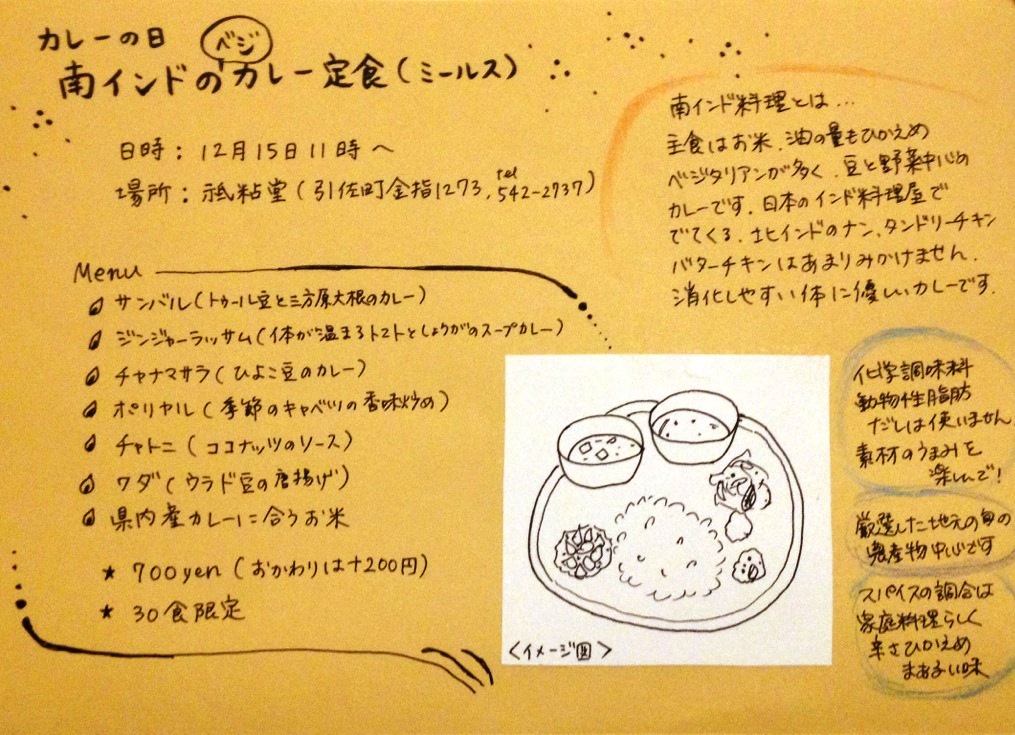 カレーの日
南インドのベジカレー定食(ミールス)
日時：12月15日11時〜
場所：祗粘堂(引佐町金指1273, tel 542-2737)
南インド料理とは...
主食はお米、油の量もひかえめ
ベジタリアンが多く、豆と野菜中心の
カレーです。日本のインド料理屋で
でてくる、北インドのナン、タンドリーチキン
バターチキンはあまりみかけません。
消化しやすい体に優しいカレーです。
Menu
サンバル(トゥール豆と三方原大根のカレー)
ジンジャーラッサム(体が温まるトマトとしょうがのスープカレー)
チャナマサラ(ひよこ豆のカレー)
ポリヤル(季節のキャベツの香味炒め)
チャトニ(ココナッツのソース)
ワダ(ウラド豆の唐揚げ)
県内産カレーに合うお米
★ 700yen(おかわりは+200円)
★ 30食限定
<イメージ図>
化学調味料
動物性脂肪
だしは使いません
素材のうまみを
楽しんで！
厳選した地元の旬の
農産物中心です
スパイスの調合は
家庭料理らしく
辛さひかえめ
まあるい味